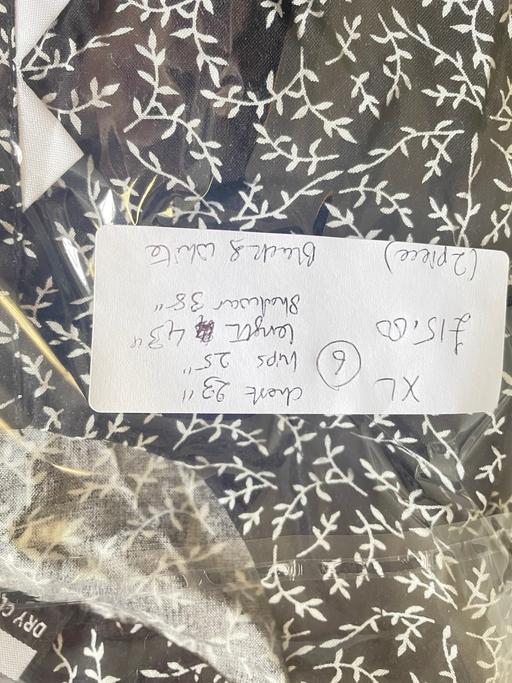 XL
chest 23"
6
hips 25"
£15.00
length 43"
Shalwar 38"
(2 piece)
Black & white
DRY